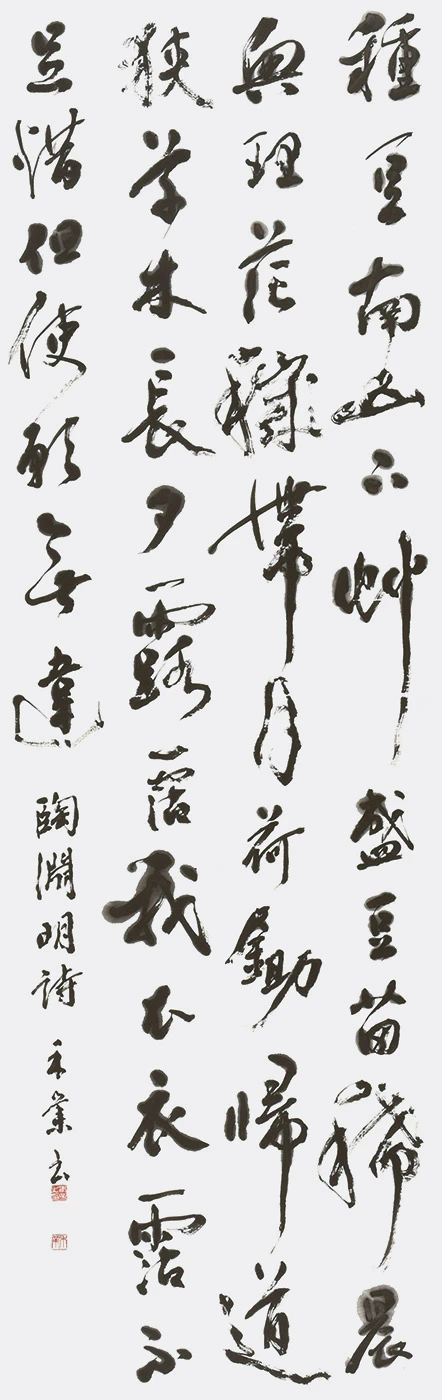 種豆南山下艸盛豆苗稀晨
興理荒穢帶月荷鋤歸道
狹草木長夕露霑我衣衣霑不
足惜但使願無違
陶淵明詩 業書